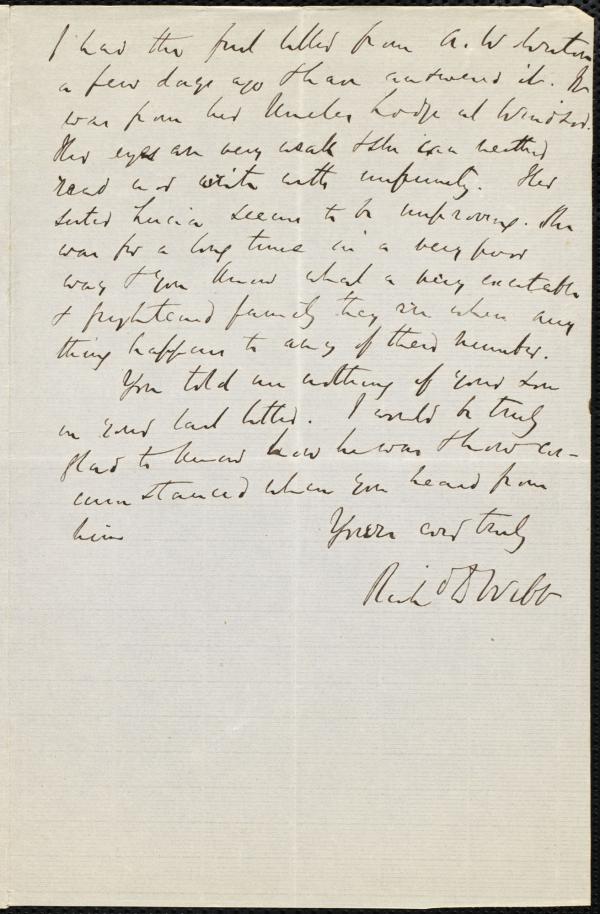 I had the first letter from A. W. Weston
a few days ago & have answered it. It
was from her Uncle's Lodge at Windsor.
Her eyes are very weak & she can neither
read nor write with impunity. Her
sister Lucia seems to be improving. She
was for a long time in a very poor
way & you know what a very excitable
& frightened family they are when any
thing happens to any of their number.
You told me nothing of your son
in your last letter. I would be truly
glad to know how he was & how cir-
cumstanced when you heard from
him
Yours ever truly
Richd D Webb